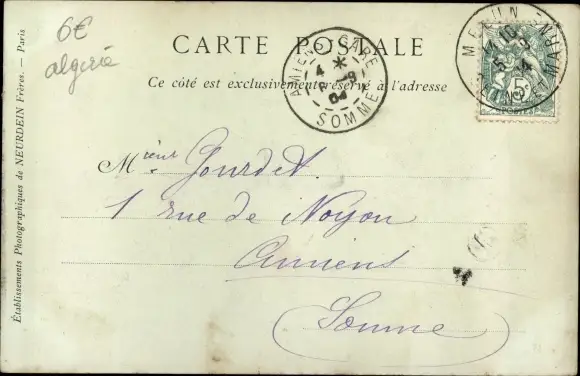 6€
algérie
CARTE POSTALE
Ce côté est exclusivement réservé à l'adresse
AMIENS GARE
4 *
SOMME
MELUN
5c
POSTES
Mr Jourdet.
1 rue de Noyon
Amiens
Somme
Établissements Photographiques de NEURDEIN Frères. — Paris